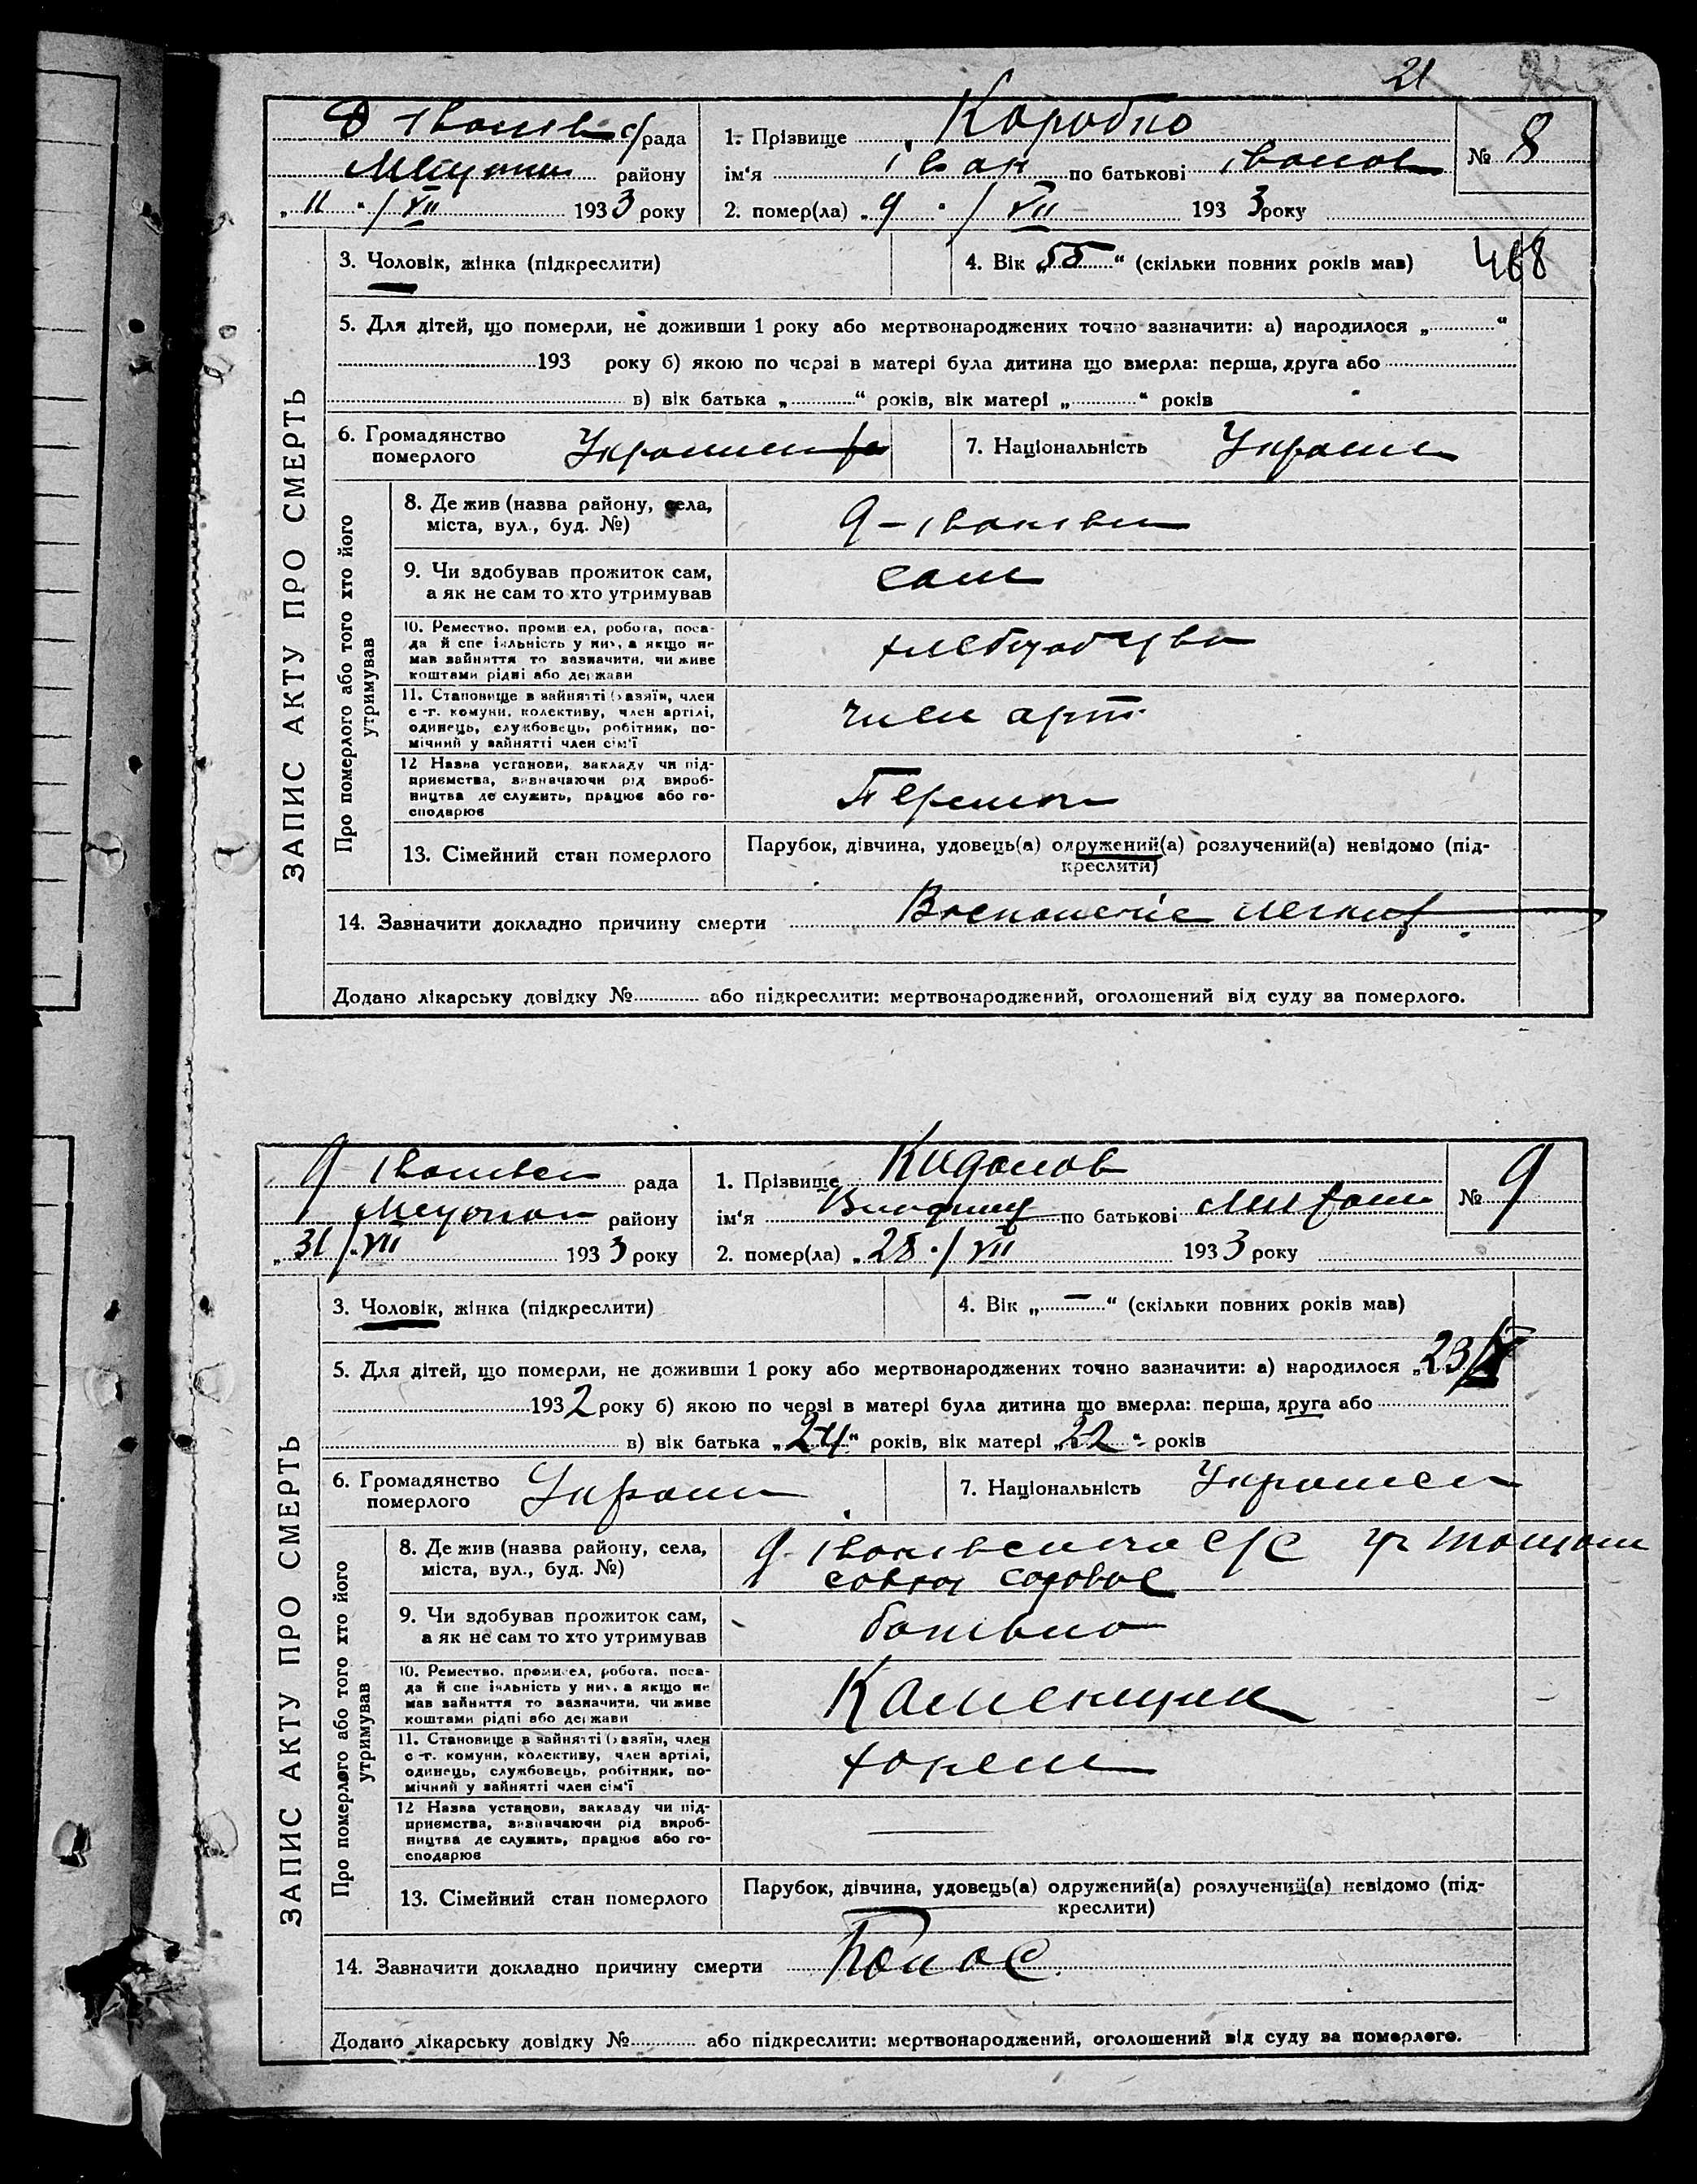 21
рада
1. Прізвище Коробко
№ 8
району
ім'я Іван по батькові Іванов
„ 11 " / VII 1933 року
2. помер(ла) „ 9 " / VII 1933 року
ЗАПИС АКТУ ПРО СМЕРТЬ
3. Чоловік, жінка (підкреслити)
4. Вік „ 55 " (скільки повних років мав)
468
5. Для дітей, що померли, не доживши 1 року або мертвонароджених точно зазначити: а) народилося „ "
193 року б) якою по черзі в матері була дитина що вмерла: перша, друга або
в) вік батька „ " років, вік матері „ " років
6. Громадянство
померлого
7. Національність
Про померлого або того хто його
утримував
8. Де жив (назва району, села,
міста, вул., буд. №)
9. Чи здобував прожиток сам,
а як не сам то хто утримував
сам
10. Ремество, промисел, робота, поса-
да й спеціяльність у них, а якщо не
мав зайняття то зазначити, чи живе
коштами рідні або держави
11. Становище в зайнятті (хазяїн, член
с-г. комуни, колективу, член артілі,
одинець, службовець, робітник, по-
мічний у зайнятті член сім'ї
член арт.
12 Назва установи, закладу чи під-
приємства, визначаючи рід вироб-
ництва де служить, працює або го-
сподарює
13. Сімейний стан померлого
Парубок, дівчина, удовець(а) одружений(а) розлучений(а) невідомо (під-
креслити)
14. Зазначити докладно причину смерти Воспаление легких
Додано лікарську довідку № або підкреслити: мертвонароджений, оголошений від суду за померлого.
рада
1. Прізвище
№ 9
району
ім'я по батькові
„ 31 / VII 1933 року
2. помер(ла) „ 28 " / VII 1933 року
ЗАПИС АКТУ ПРО СМЕРТЬ
3. Чоловік, жінка (підкреслити)
4. Вік „ — " (скільки повних років мав)
5. Для дітей, що померли, не доживши 1 року або мертвонароджених точно зазначити: а) народилося „ 23/
1932 року б) якою по черзі в матері була дитина що вмерла: перша, друга або
в) вік батька „ 24 " років, вік матері „ 22 " років
6. Громадянство
померлого
7. Національність
Про померлого або того хто його
утримував
8. Де жив (назва району, села,
міста, вул., буд. №)
с/с
9. Чи здобував прожиток сам,
а як не сам то хто утримував
батько
10. Ремество, промисел, робота, поса-
да й спеціяльність у них, а якщо не
мав зайняття то зазначити, чи живе
коштами рідні або держави
Каменщик
11. Становище в зайнятті (хазяїн, член
с-г. комуни, колективу, член артілі,
одинець, службовець, робітник, по-
мічний у зайнятті член сім'ї
12 Назва установи, закладу чи під-
приємства, визначаючи рід вироб-
ництва де служить, працює або го-
сподарює
13. Сімейний стан померлого
Парубок, дівчина, удовець(а) одружений(а) розлучений(а) невідомо (під-
креслити)
14. Зазначити докладно причину смерти Понос
Додано лікарську довідку № або підкреслити: мертвонароджений, оголошений від суду за померлого.